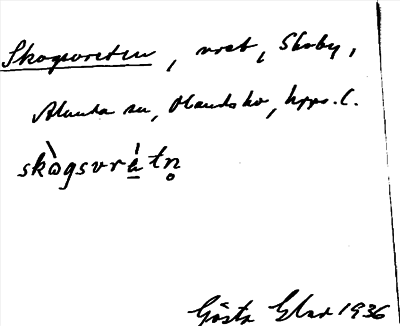 Skogsvreten, vret, Skoby,
Alunda sn, Olands hd, Upps. l.
skògsvrètn̥
Gösta Elar 1936